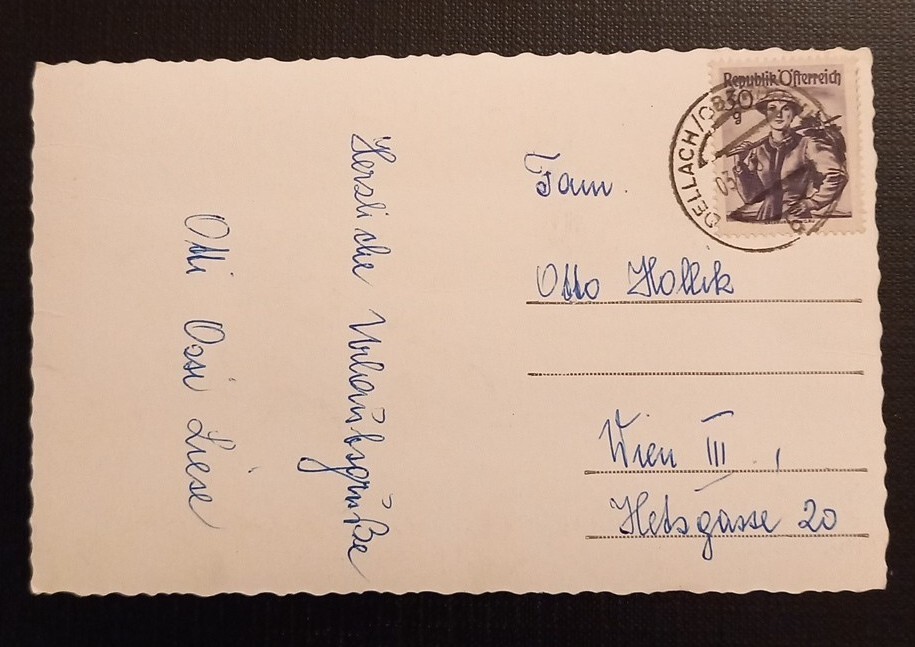 Herzliche Urlaubsgrüße
Otti Ossi Liese
Republik Österreich
30
g
DELLACH/
03
Fam.
Otto Hollik
Wien III.,
Hetzgasse 20